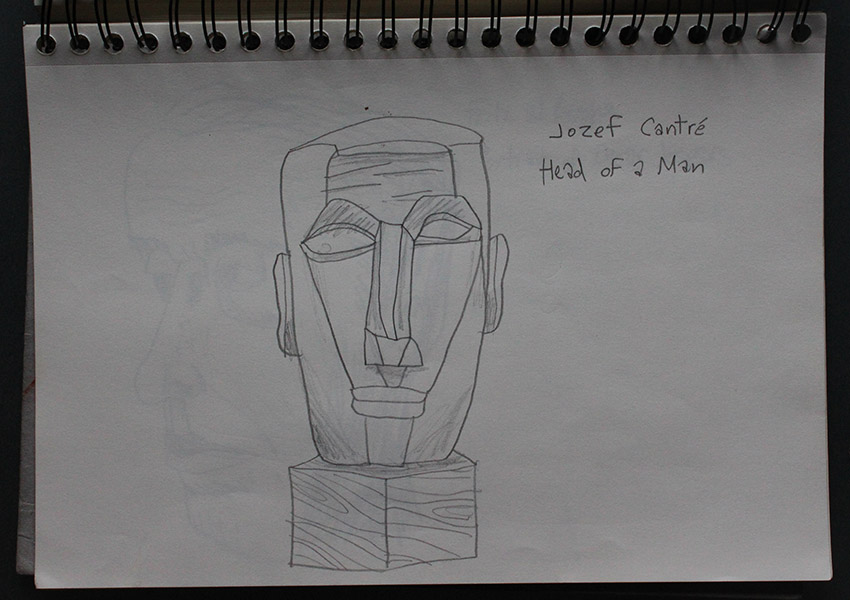 Jozef Cantré
Head of a Man